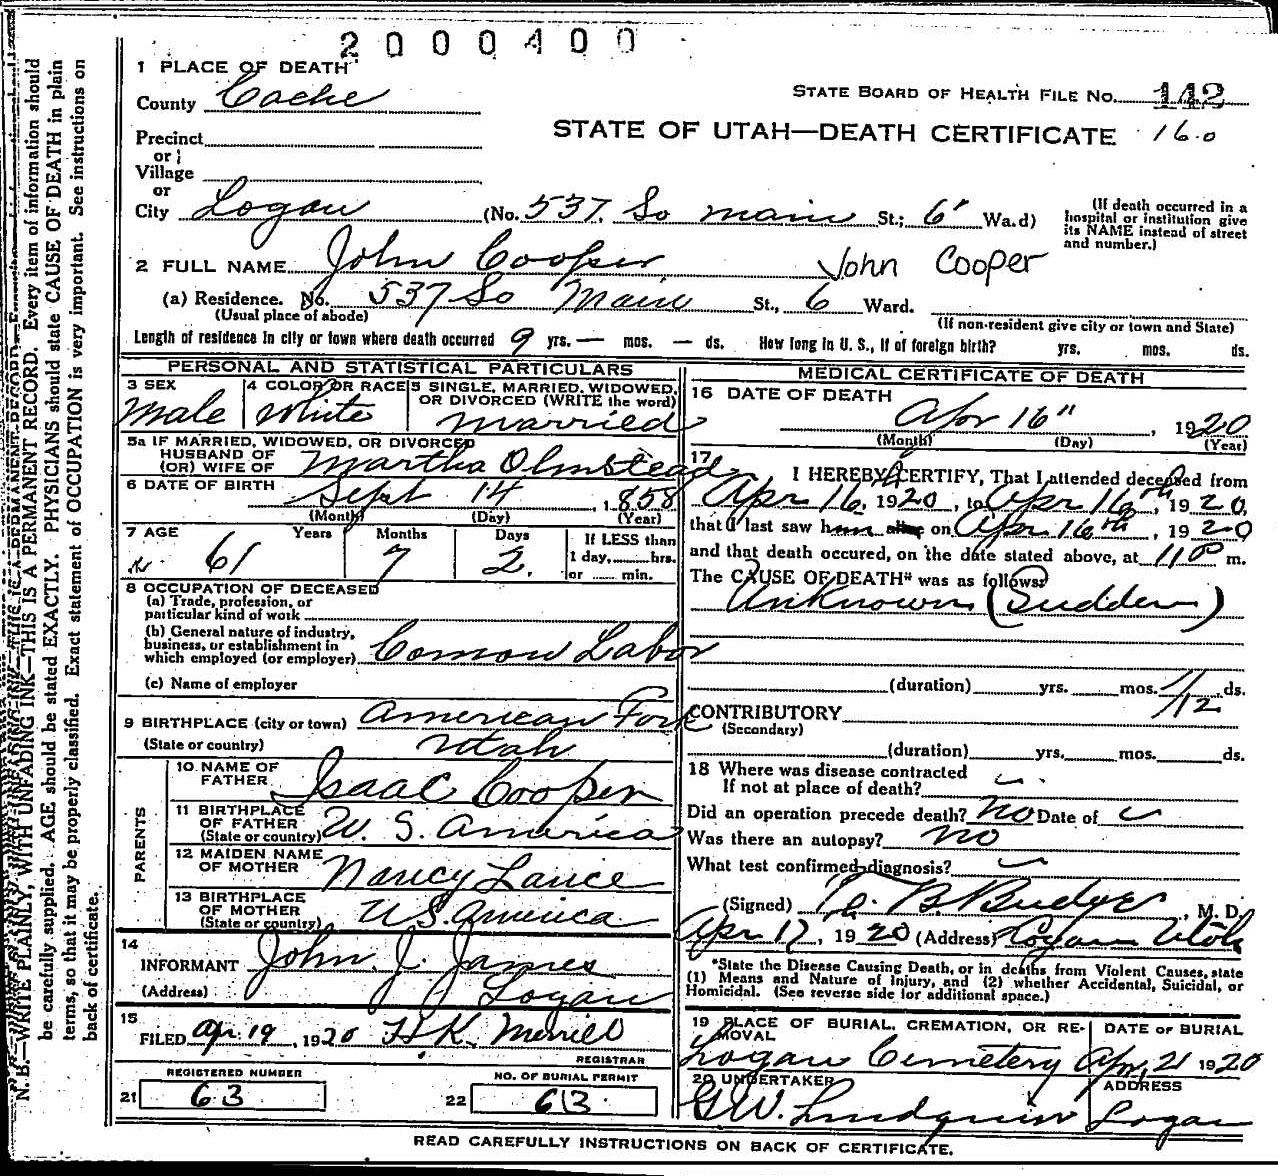 2000400
1 PLACE OF DEATH
County Cache
STATE BOARD OF HEALTH FILE No. 142
STATE OF UTAH—DEATH CERTIFICATE 160
Precinct
or
Village
or
City Logan (No. 537. So main St.; 6 Wa.d)
(If death occurred in a
hospital or institution give
its NAME instead of street
and number.)
2 FULL NAME John Cooper John Cooper
(a) Residence. No. 537 So Main St., 6 Ward.
(Usual place of abode)
(If non-resident give city or town and State)
Length of residence in city or town where death occurred 9 yrs. — mos. — ds. How long in U. S., if of foreign birth? yrs. mos. ds.
PERSONAL AND STATISTICAL PARTICULARS
3 SEX
Male
4 COLOR OR RACE
White
5 SINGLE, MARRIED, WIDOWED,
OR DIVORCED (WRITE the word)
married
5a IF MARRIED, WIDOWED, OR DIVORCED
HUSBAND OF
(OR) WIFE OF Martha Olmstead
6 DATE OF BIRTH Sept 14, 1858
(Month) (Day) (Year)
7 AGE Years Months Days
61 7 2.
If LESS than
1 day, hrs.
or min.
8 OCCUPATION OF DECEASED
(a) Trade, profession, or
particular kind of work
(b) General nature of industry,
business, or establishment in
which employed (or employer) Comon Labor
(c) Name of employer
9 BIRTHPLACE (city or town) American Fork
(State or country) Utah
PARENTS
10 NAME OF
FATHER Isaac Cooper
11 BIRTHPLACE
OF FATHER
(State or country) U. S. America
12 MAIDEN NAME
OF MOTHER Nancy Lance
13 BIRTHPLACE
OF MOTHER
(State or country) US America
14
INFORMANT John J. James
(Address) Logan
15
FILED Apr 19, 1920 H.K. Merrill
REGISTRAR
REGISTERED NUMBER
21 63
NO. OF BURIAL PERMIT
22 613
MEDICAL CERTIFICATE OF DEATH
16 DATE OF DEATH
Apr 16", 1920
(Month) (Day) (Year)
17
I HEREBY CERTIFY, That I attended deceased from
Apr 16th 1920, to Apr 16th, 1920,
that I last saw him alive on Apr 16th, 1920
and that death occured, on the date stated above, at 11 00 m.
The CAUSE OF DEATH* was as follows:
Unknown (Sudden)
(duration) yrs. mos. 1/12 ds.
CONTRIBUTORY
(Secondary)
(duration) yrs. mos. ds.
18 Where was disease contracted
If not at place of death?
Did an operation precede death? no Date of
Was there an autopsy? no
What test confirmed diagnosis?
(Signed) B. Budge, M. D.
Apr 17, 1920 (Address) Logan Utah
*State the Disease Causing Death, or in deaths from Violent Causes, state
(1) Means and Nature of Injury, and (2) whether Accidental, Suicidal, or
Homicidal. (See reverse side for additional space.)
19 PLACE OF BURIAL, CREMATION, OR RE-
MOVAL
Logan Cemetery
DATE OF BURIAL
Apr, 21 1920
20 UNDERTAKER
G W. Lindquist
ADDRESS
Logan
READ CAREFULLY INSTRUCTIONS ON BACK OF CERTIFICATE.
N. B.—WRITE PLAINLY, WITH UNFADING INK—THIS IS A PERMANENT RECORD. Every item of information should
be carefully supplied. AGE should be stated EXACTLY. PHYSICIANS should state CAUSE OF DEATH in plain
terms, so that it may be properly classified. Exact statement of OCCUPATION is very important. See instructions on
back of certificate.